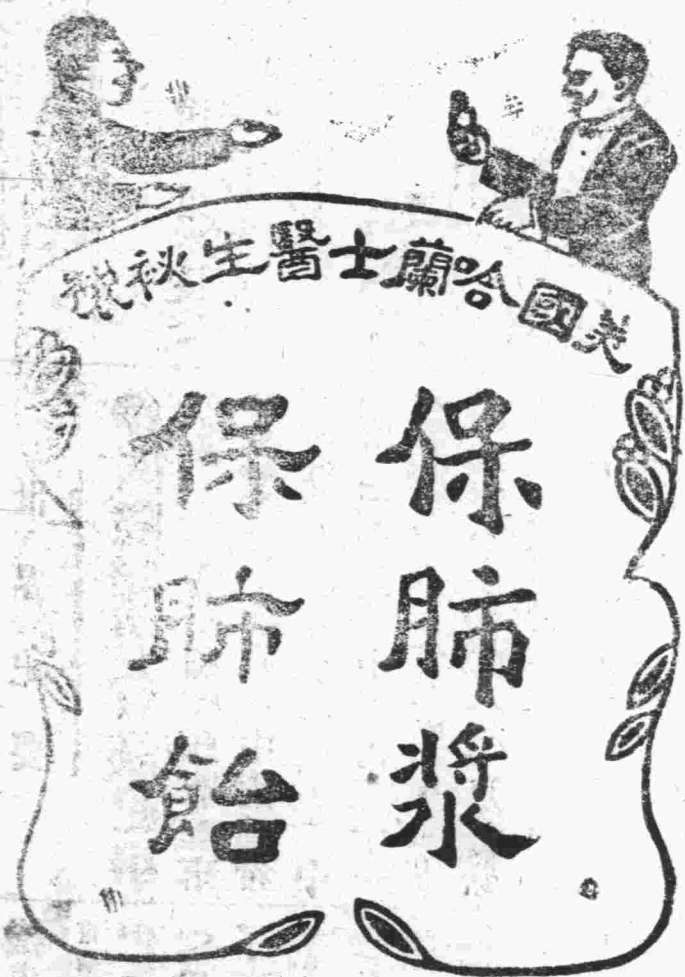 美國哈蘭士醫生秋製
保肺漿
保肺飴